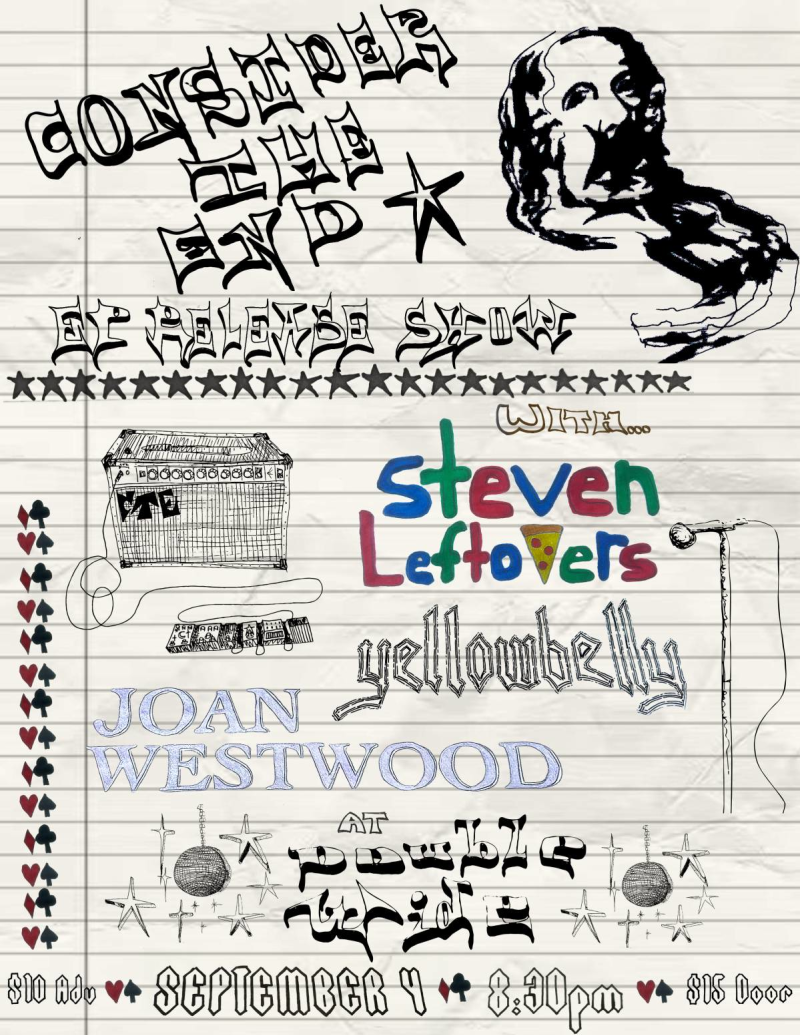 CONSIDER
THE
END
EP RELEASE SHOW
WITH...
steven
Leftovers
CTE
yellowbelly
JOAN
WESTWOOD
AT
DOUBLE
WIDE
$10 Adv SEPTEMBER 4 8:30pm $15 Door